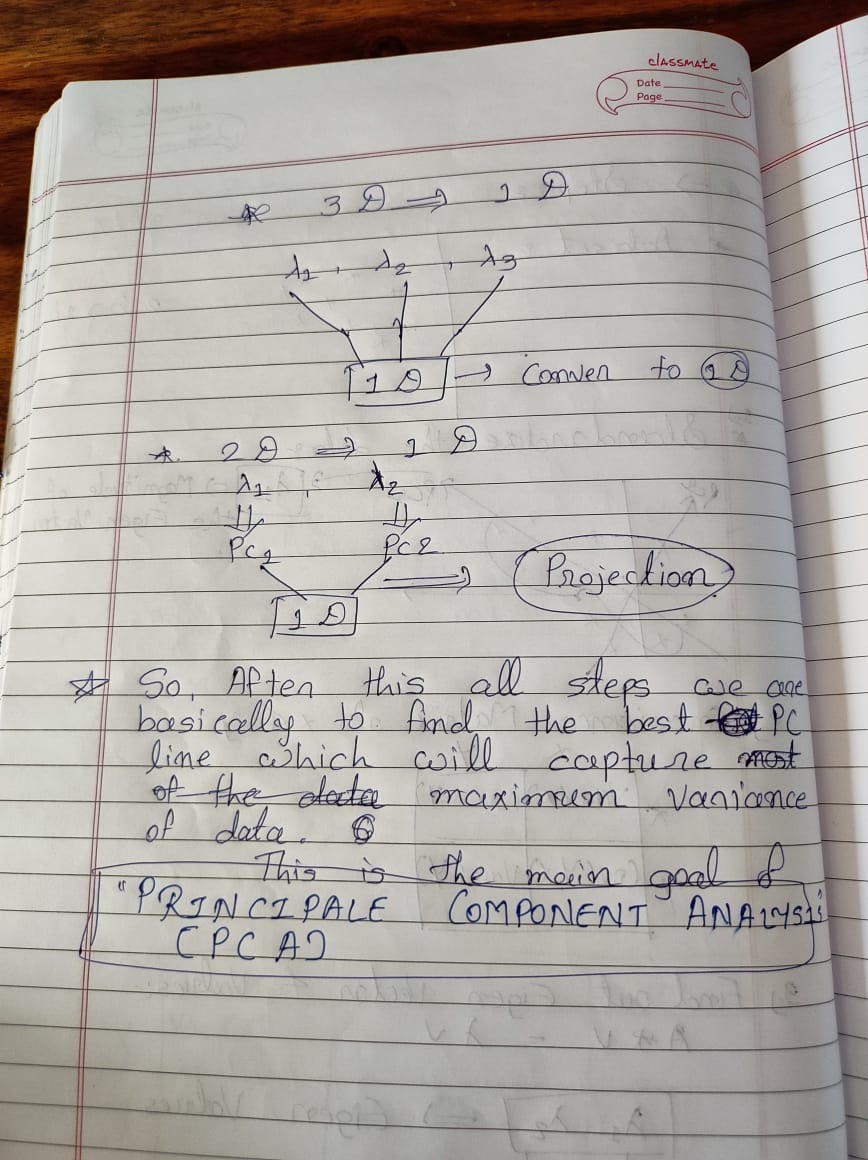 classmate
Date
Page
* 3 D ⇒ 1 D
λ1 , λ2 , λ3
1 D → Conver to 1D
* 2 D ⇒ 1 D
λ1 , λ2
PC1 PC2
1 D ⇒ Projection
☆ So, After this all steps we are
basically to find the best PC
line which will capture most
of the data maximum variance
of data.
This is the main goal of
"PRINCIPALE COMPONENT ANALYSIS
(PCA)